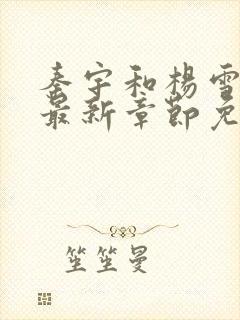 秦宇和杨雪
最新章节免
笙笙曼